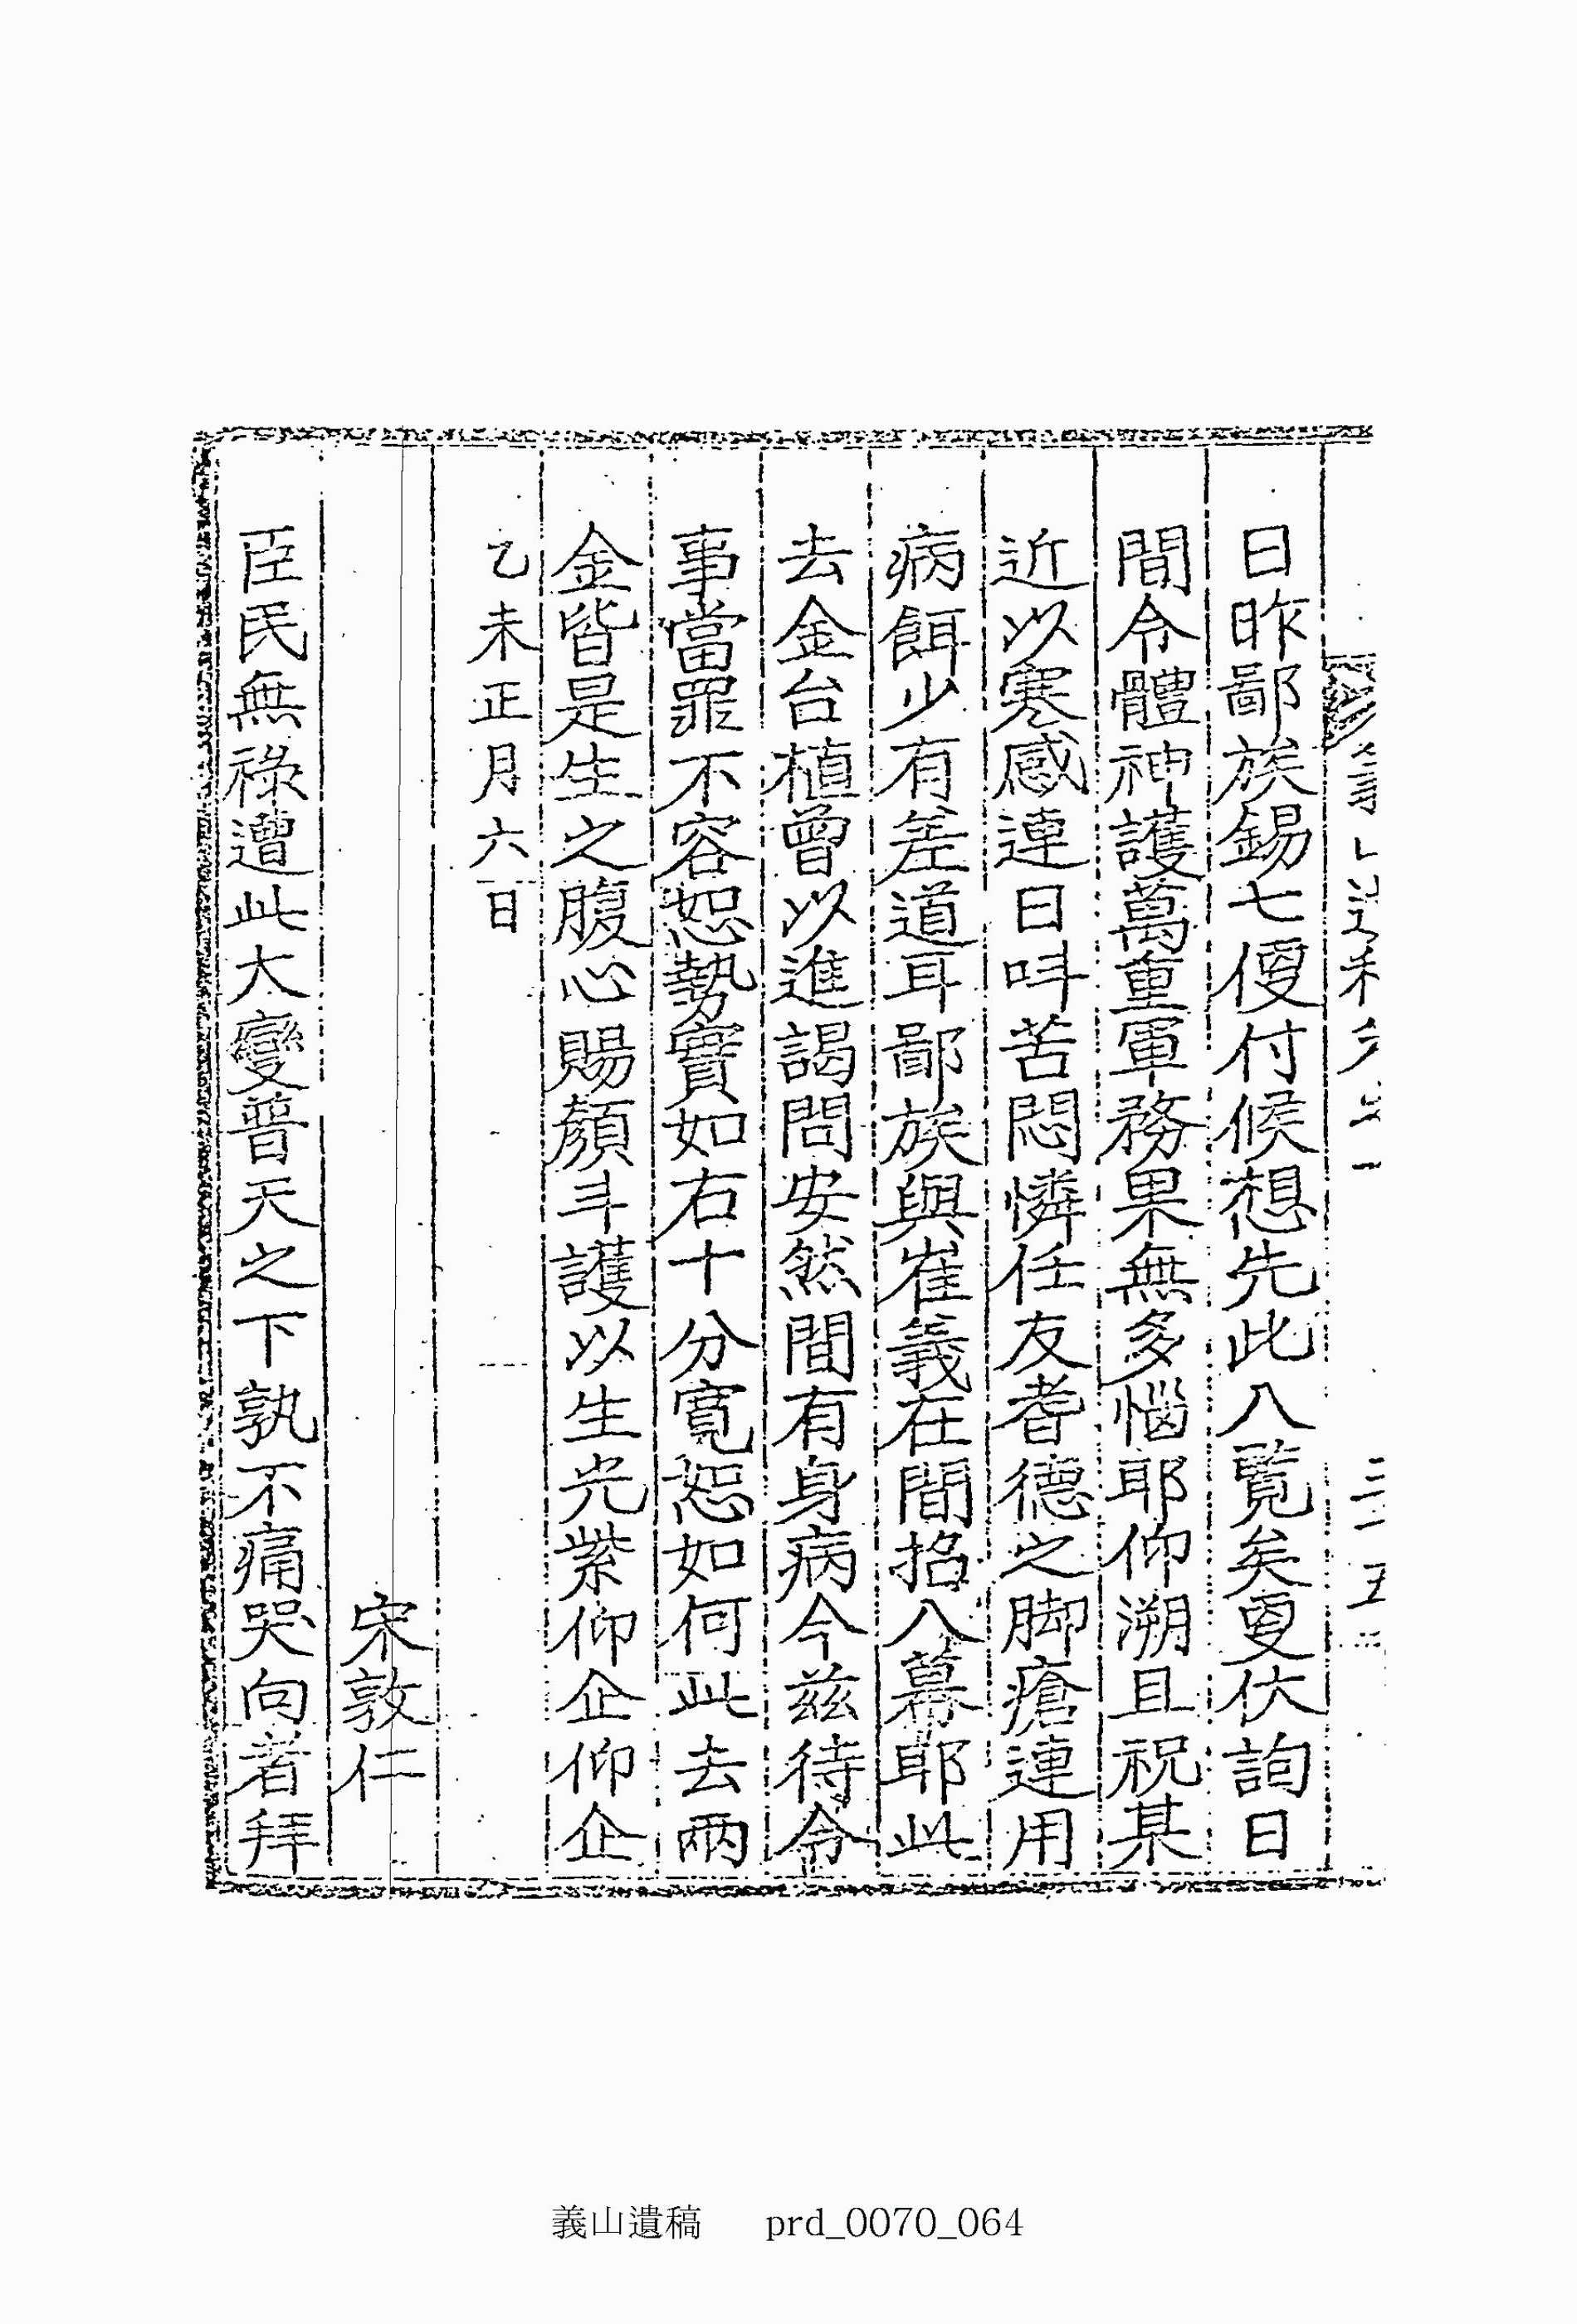 日昨鄙族錫七便付候想先此入覧矣更伏詢日
間令體神護萬重軍務果無多惱耶仰溯且祝某
近以寒感連日呌苦悶憐任友耆德之脚瘡連用
病餌少有差道耳鄙族與崔義在間招入幕耶此
去金台植曾以進謁問安然間有身病今玆待令
事當罪不容恕勢實如右十分寬恕如何此去兩
金皆是生之腹心賜顔斗護以生光紫仰企仰企
乙未正月六日
宋敦仁
臣民無祿遭此大變普天之下孰不痛哭向者拜
義山遺稿 prd_0070_064